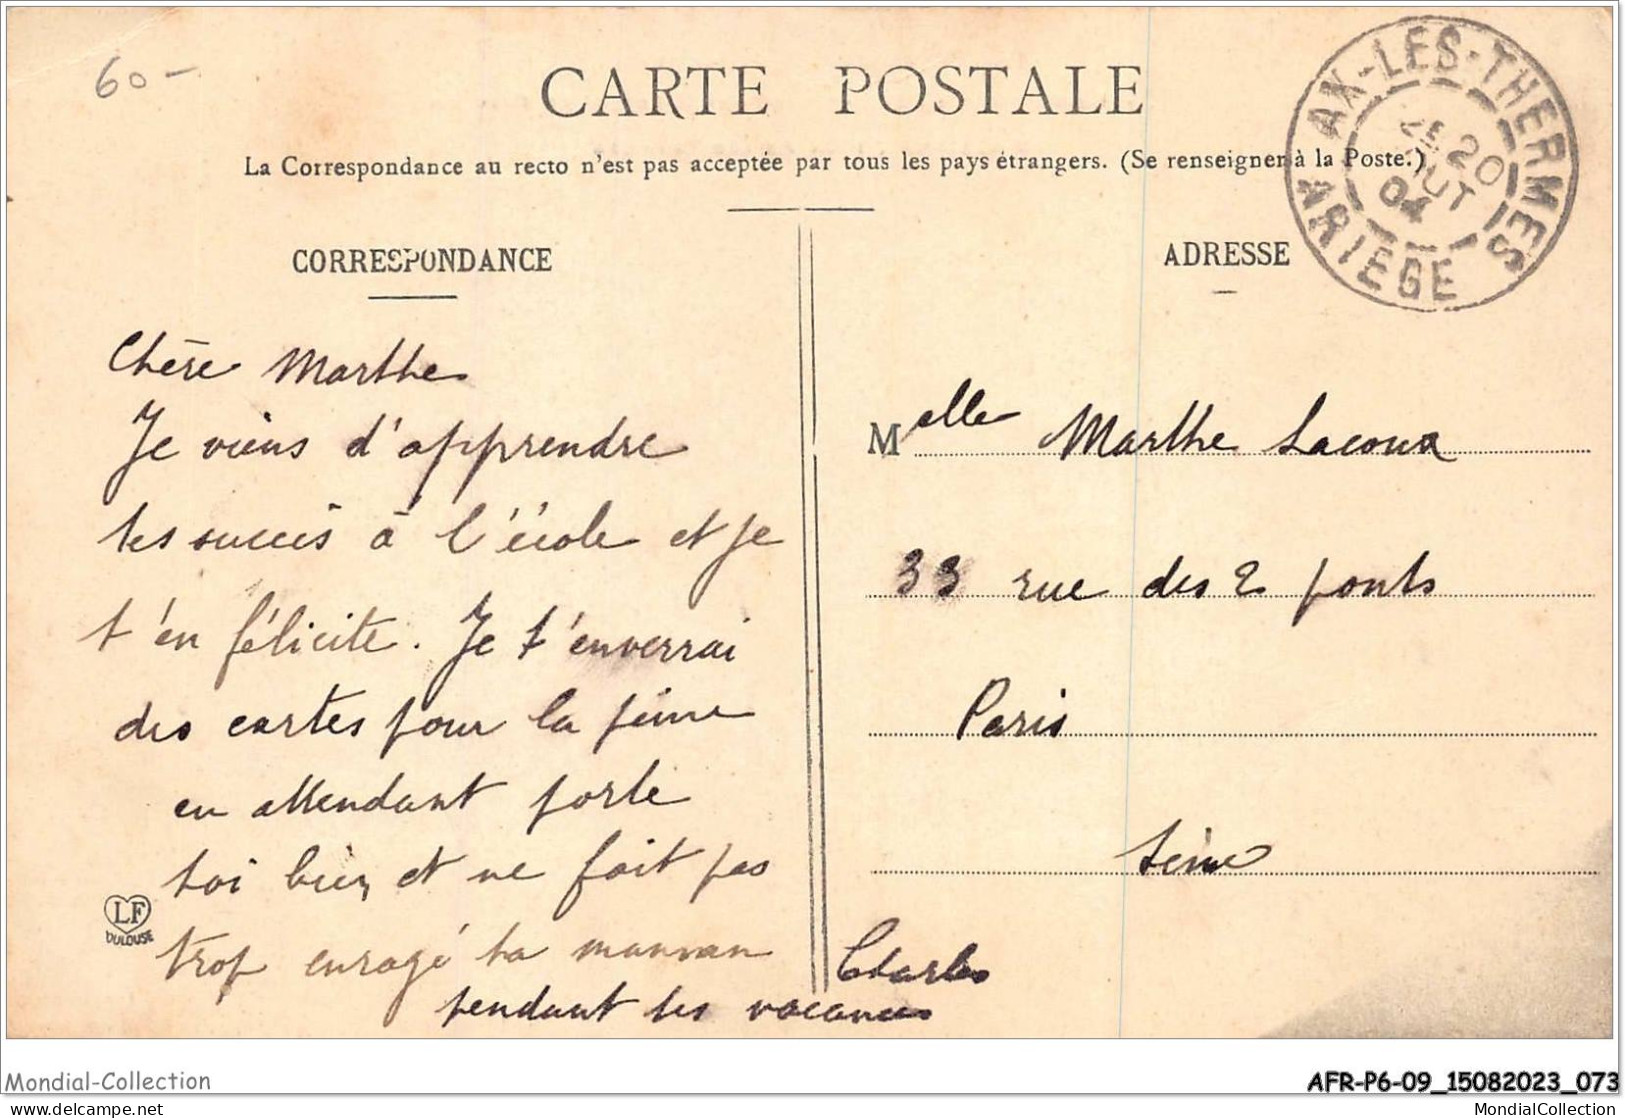 60-
CARTE POSTALE
La Correspondance au recto n'est pas acceptée par tous les pays étrangers. (Se renseigner à la Poste.)
AX-LES-THERMES
20
04
ARIEGE
CORRESPONDANCE
ADRESSE
Chère Marthe
Je viens d'apprendre
tes succès à l'école et je
t'en félicite. Je t'enverrai
des cartes pour la peine
en attendant porte
toi bien et ne fait pas
trop enragé ta maman
pendant tes vacances
Charles
Melle Marthe Lacoux
33 rue des 2 ponts
Paris
Seine
LF
TOULOUSE
Mondial-Collection
AFR-P6-09_15082023_073
www.delcampe.net
MondialCollection